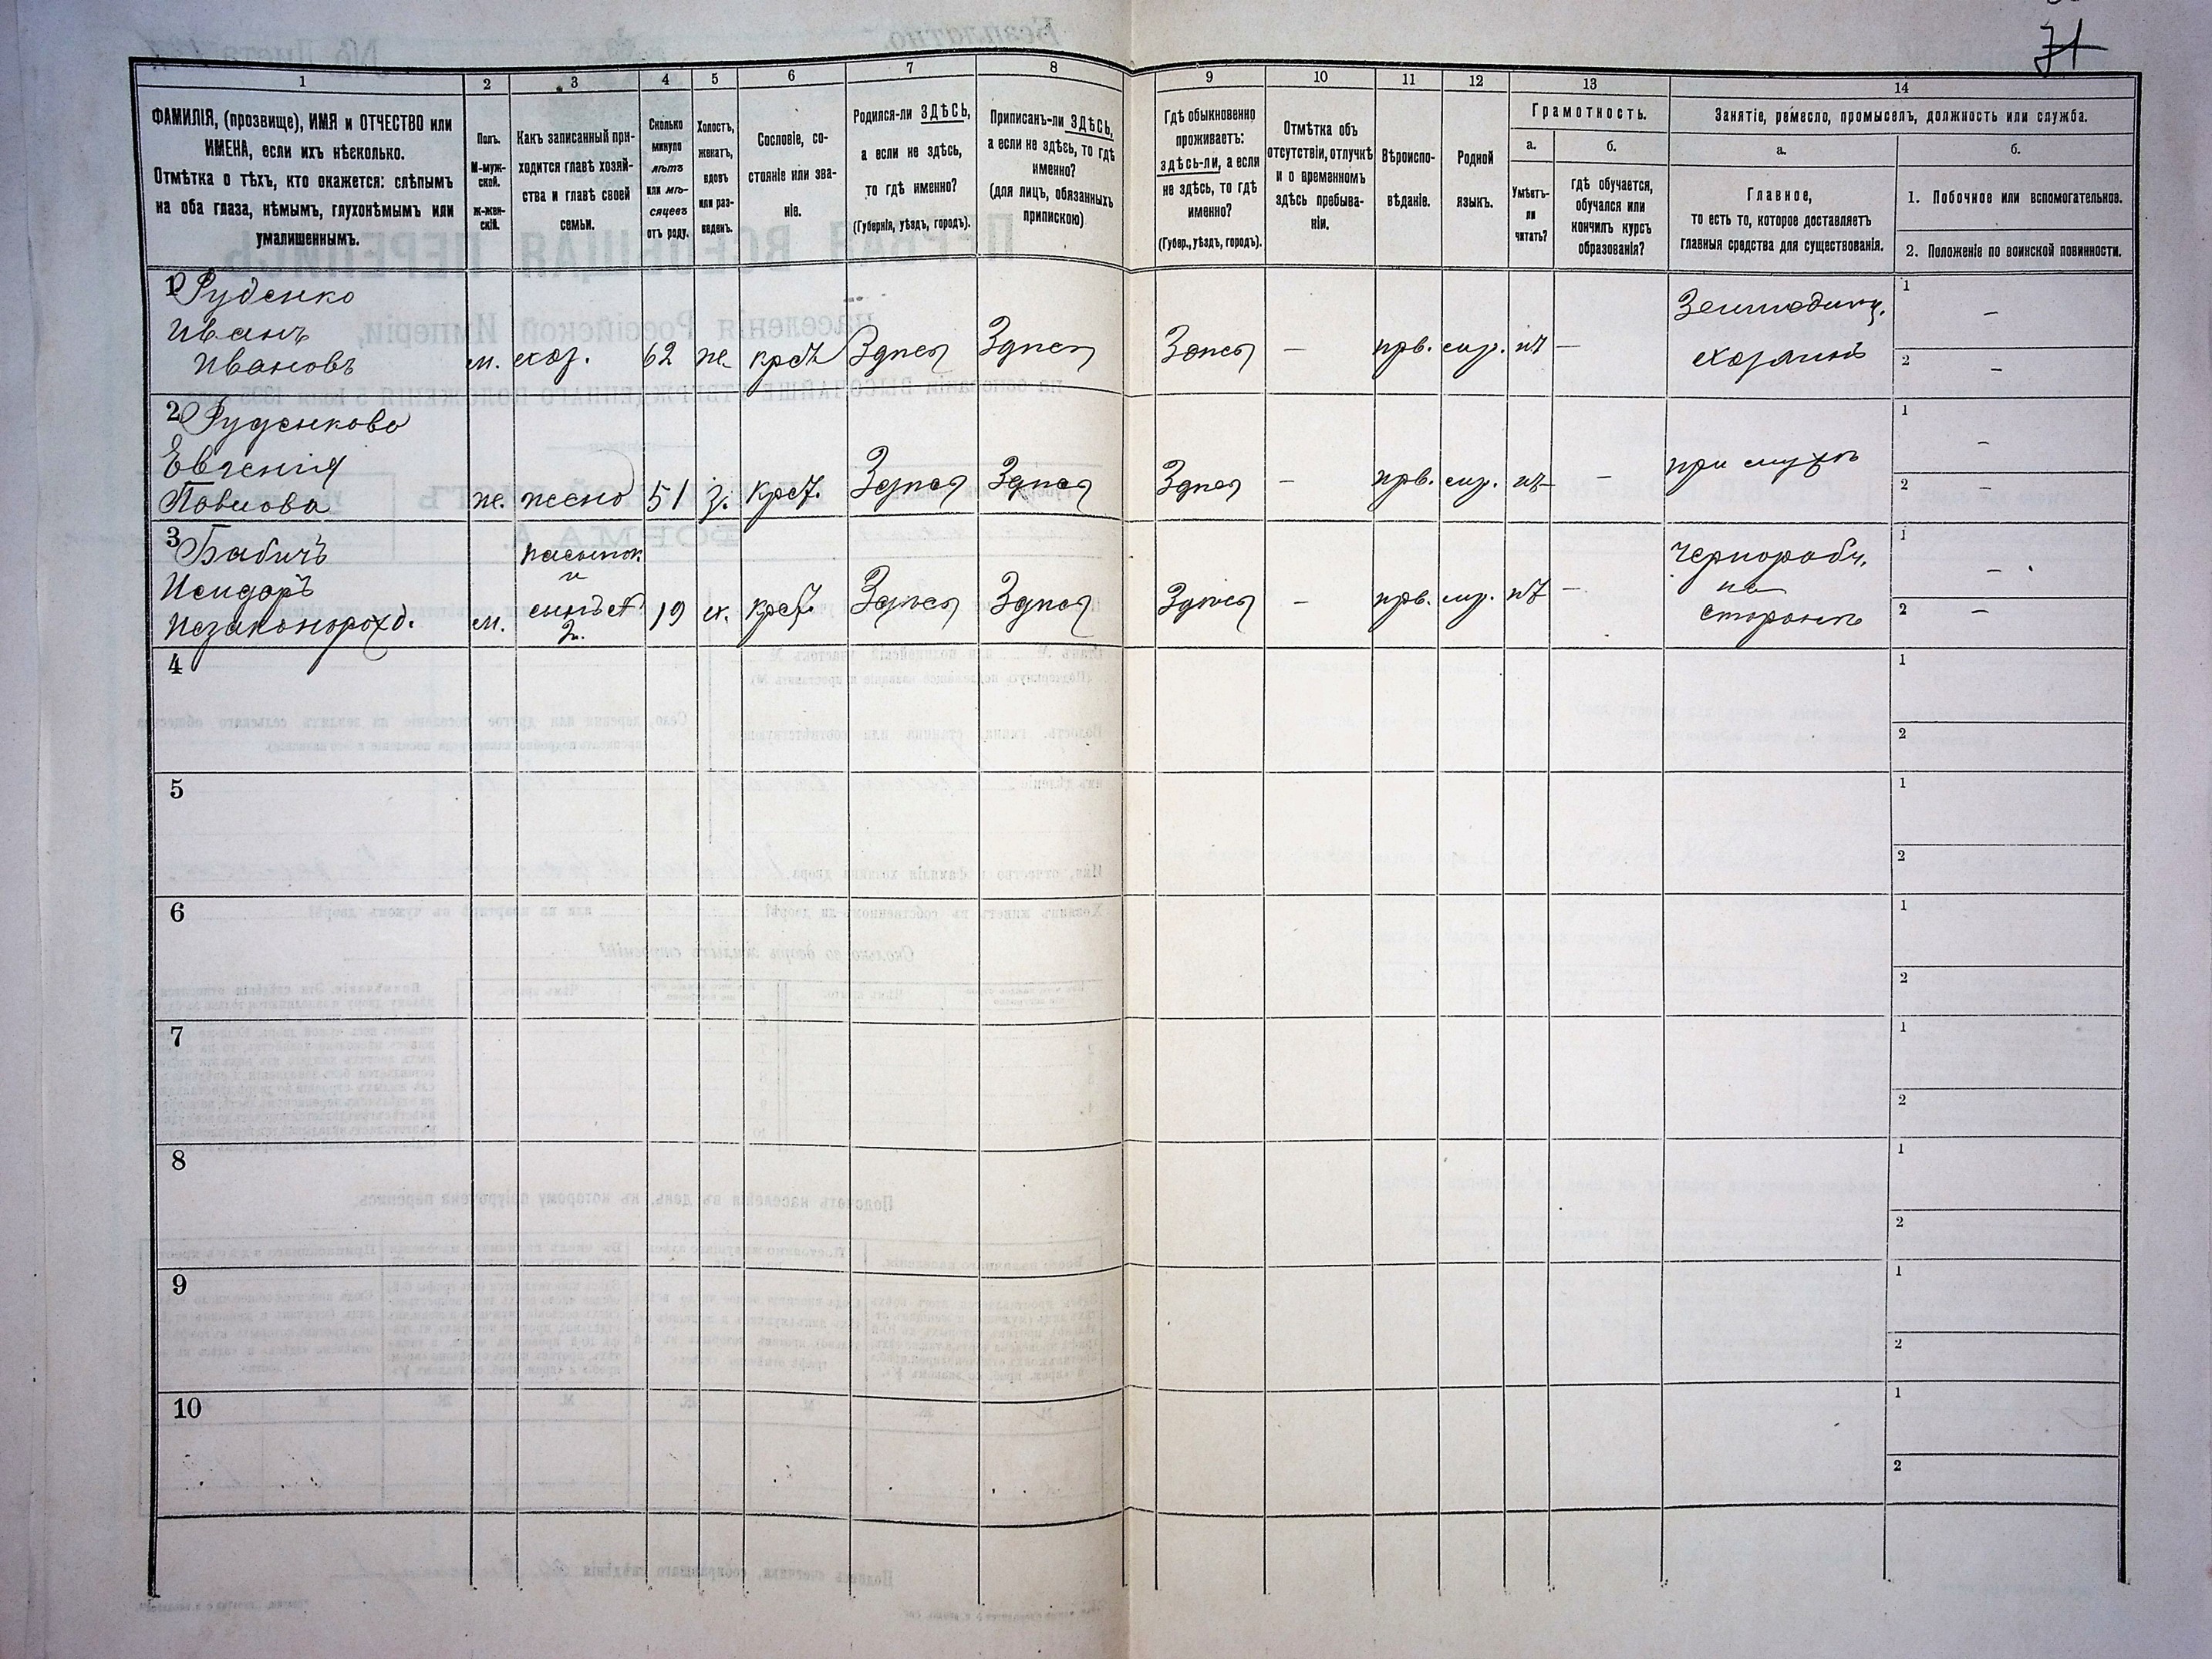 71
1 2 3 4 5 6 7 8 9 10 11 12 13 14
ФАМИЛІЯ, (прозвище), ИМЯ и ОТЧЕСТВО или
ИМЕНА, если ихъ нѣсколько.
Отмѣтка о тѣхъ, кто окажется: слѣпымъ
на оба глаза, нѣмымъ, глухонѣмымъ или
умалишеннымъ.
Полъ.
М-муж-
ской.
ж-жен-
скій.
Какъ записанный при-
ходится главѣ хозяй-
ства и главѣ своей
семьи.
Сколько
минуло
лѣтъ
или мѣ-
сяцевъ
отъ роду.
Холостъ,
женатъ,
вдовъ
или раз-
веденъ.
Сословіе, со-
стояніе или зва-
ніе.
Родился-ли ЗДѢСЬ,
а если не здѣсь,
то гдѣ именно?
(Губернія, уѣздъ, городъ).
Приписанъ-ли ЗДѢСЬ,
а если не здѣсь, то гдѣ
именно?
(для лицъ, обязанныхъ
припискою)
Гдѣ обыкновенно
проживаетъ:
здѣсь-ли, а если
не здѣсь, то гдѣ
именно?
(Губер., уѣздъ, городъ).
Отмѣтка объ
отсутствіи, отлучкѣ
и о временномъ
здѣсь пребыва-
ніи.
Вѣроиспо-
вѣданіе.
Родной
языкъ.
Грамотность.
а.
Умѣетъ-
ли
читать?
б.
гдѣ обучается,
обучался или
кончилъ курсъ
образованія?
Занятіе, ремесло, промыселъ, должность или служба.
а.
Главное,
то есть то, которое доставляетъ
главныя средства для существованія.
б.
1. Побочное или вспомогательное.
2. Положеніе по воинской повинности.
1 Руденко
Иванъ
Ивановъ
м. хоз. 62 ж. крст Здѣсь Здѣсь Здѣсь — прв. млр. нѣт —
Земледѣлец.
хозяинъ
1 —
2 —
2 Руденкова
Евгенія
Павлова
ж. жена 51 з. крст. Здѣсь Здѣсь Здѣсь — прв. млр. нѣт —
при мужѣ
1 —
2 —
3 Бабичъ
Исидоръ
Незаконорожд.
м.
пасынок
и
сынъ
2.
19 х. крст. Здѣсь Здѣсь Здѣсь — прв. млр. нѣт —
Чернорабч.
на
сторонѣ
1 —
2 —
4 1
2
5 1
2
6 1
2
7 1
2
8 1
2
9 1
2
10 1
2